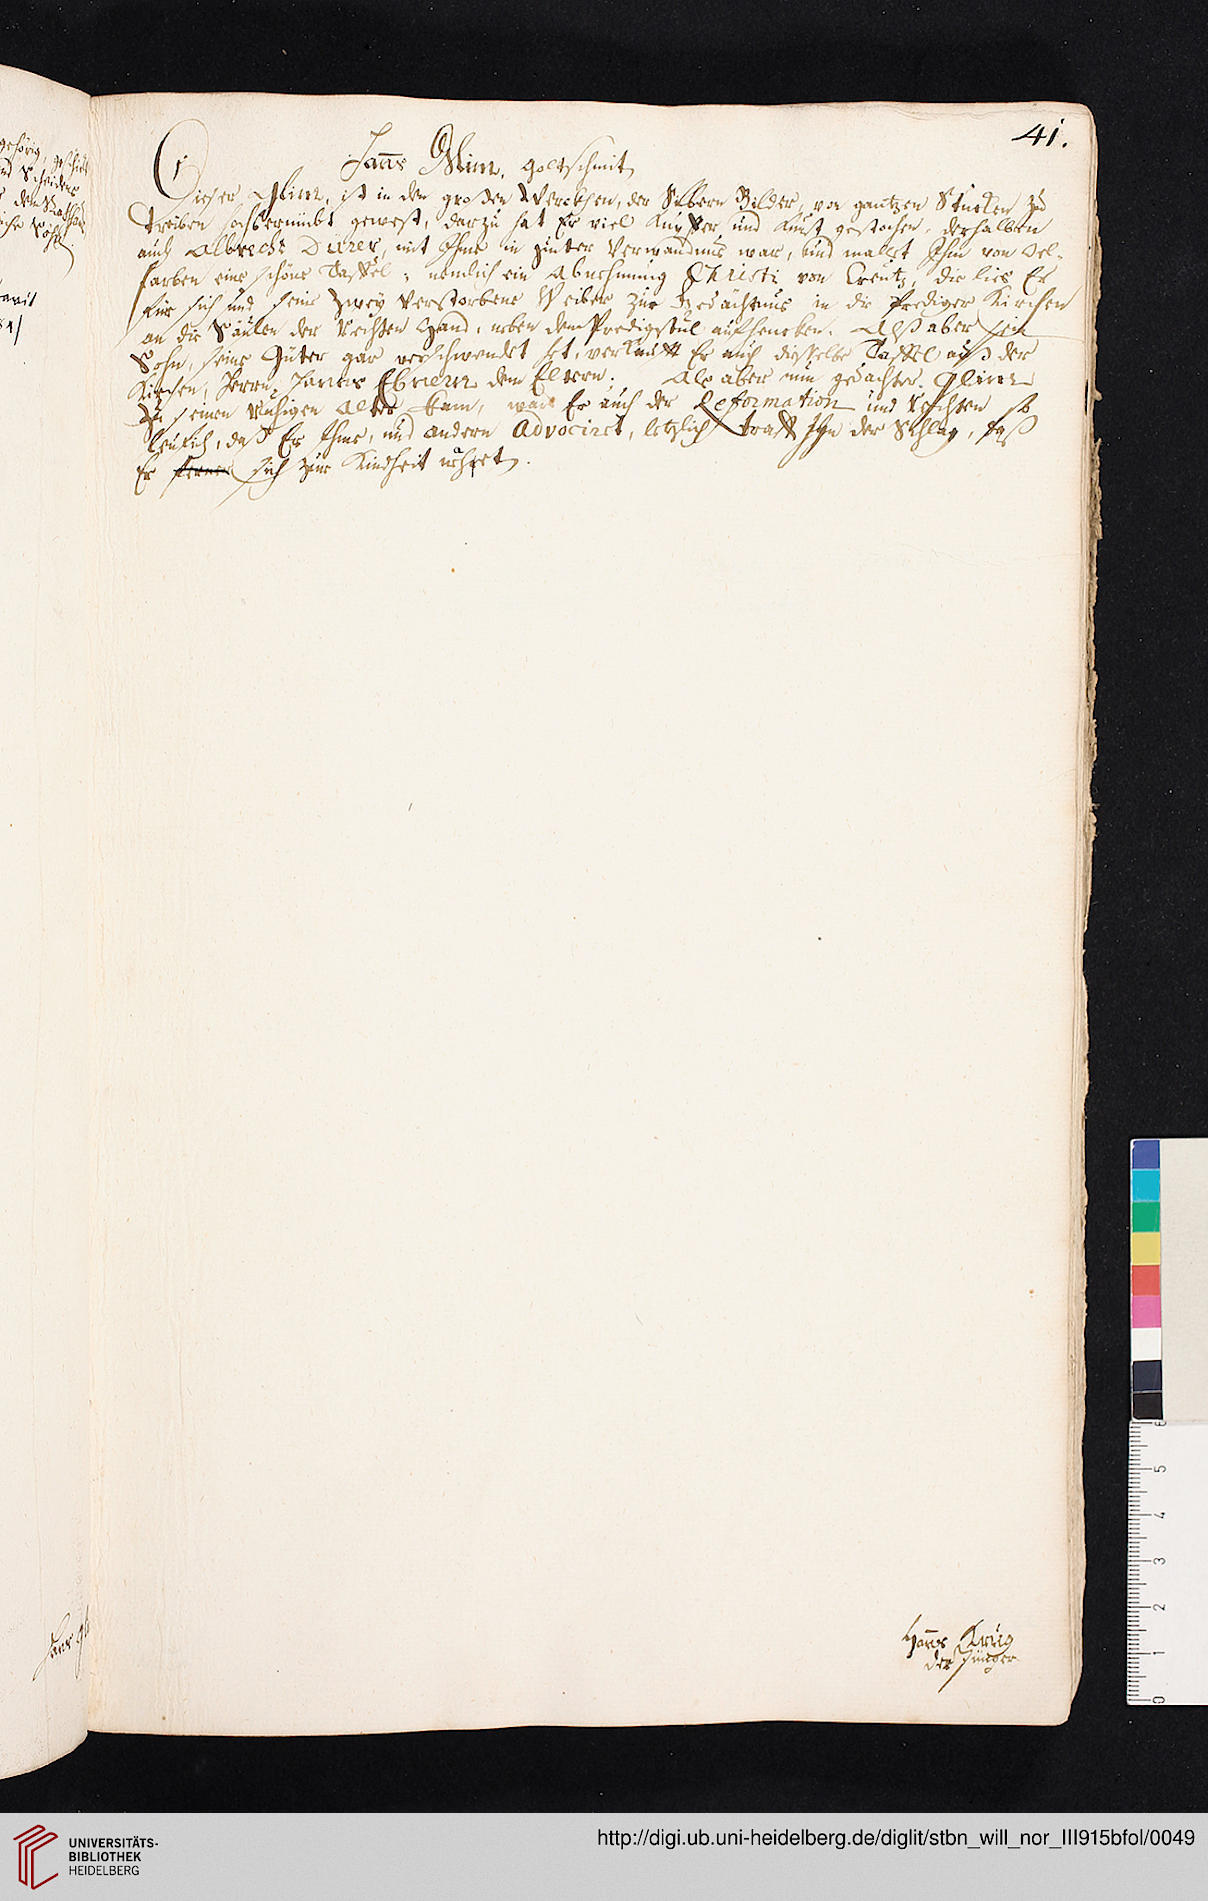 41.
Hanns Glim, Goltschmit
Dieser Glim, ist in den grosen Werckhen, der Silbern Bilder, von gantzen Stucken zu
treiben hochberümbt gewest, darzu hat Er viel Kupffer und Kunst gestochen, derhalben
auch Albrecht Dürer, mit Ihme in guter Verwandnus war, und mallet Ihm von Oel-
farben eine schöne Taffel, nemlich ein Abnehmung Christi von Creutz, die lies Er
für sich und seine Zwey Verstorbene Weiber zur Gedächtnus in die Prediger Kirchen
an die Säulen der Rechten Hand, neben dem Predigstul aufhencken. Alß aber sein
Sohn, seine Güter gar verschwendet het, verkaufft Er auch dieselbe Taffel auß der
Kirchen, Herrn Hannss Ebnern dem Eltern. Als aber nun gedachter Glimm
zu seinem Ruhigen Alter kam, war Er auch der Reformation und Rechten so
leufich, daß Er Ihme, und andern Advociret, letzlich traff Ihn der Schlag, daß
Er sich zur Kindheit nehret.
Hanns Krug
der Jünger
UNIVERSITÄTS-
BIBLIOTHEK
HEIDELBERG
http://digi.ub.uni-heidelberg.de/diglit/stbn_will_nor_III915bfol/0049